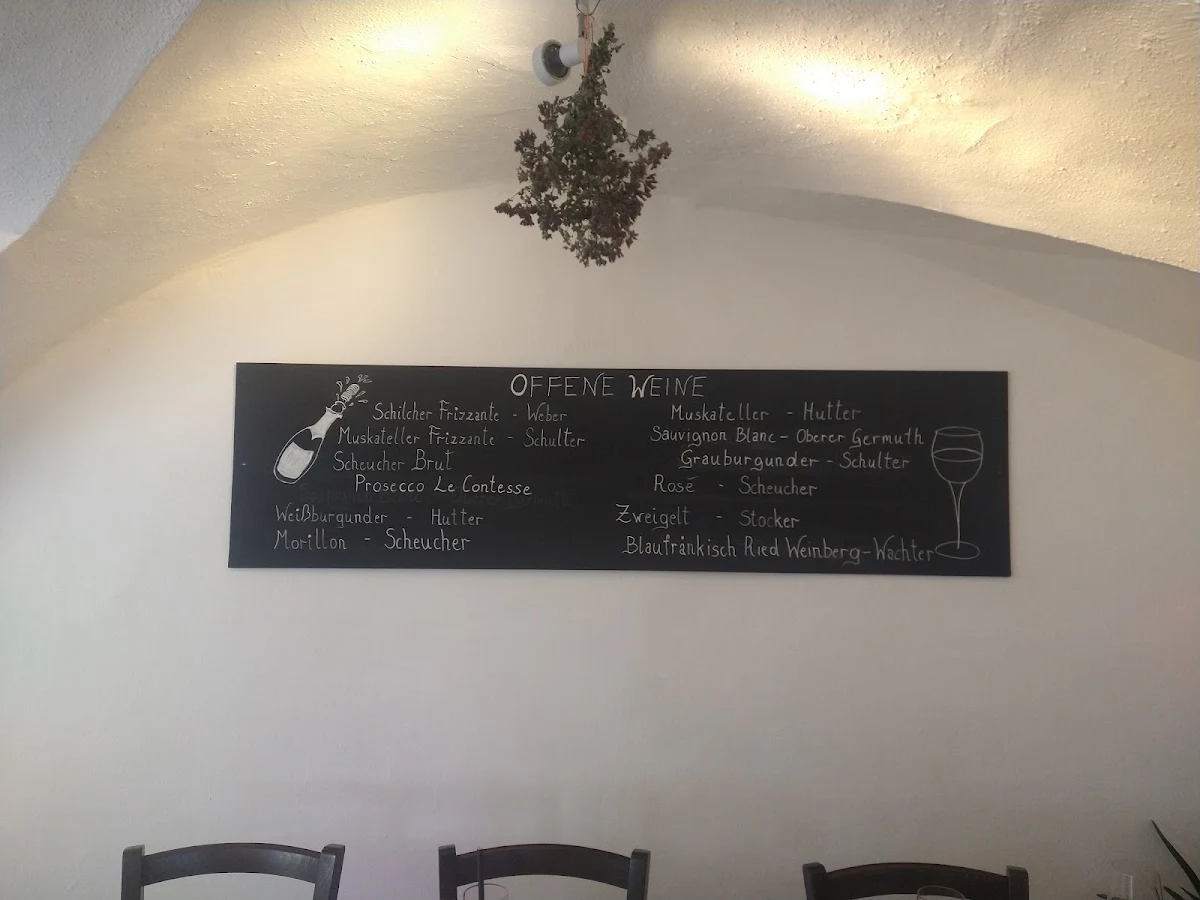 OFFENE WEINE
Schilcher Frizzante - Weber
Muskateller Frizzante - Schulter
Scheucher Brut
Prosecco Le Contesse
Weißburgunder - Hutter
Morillon - Scheucher
Muskateller - Hutter
Sauvignon Blanc - Oberer Germuth
Grauburgunder - Schulter
Rosé - Scheucher
Zweigelt - Stocker
Blaufränkisch Ried Weinberg - Wachter